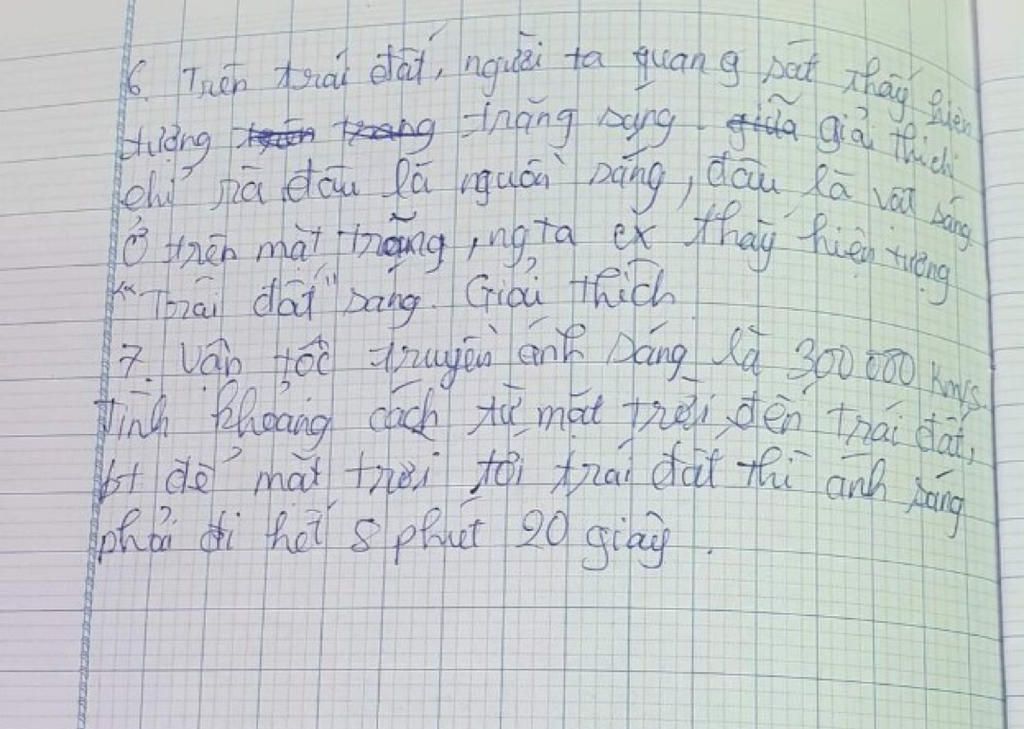 6. Trên trái đất, người ta quang sát thấy hiện
tượng trăng sáng. giải thích
chỉ ra đâu là nguồn sáng, đâu là vật sáng
Ở trên mặt trăng, ng ta thấy hiện tượng
"Trái đất" sáng. Giải thích
7. Vận tốc truyền ánh sáng là 300 000 Km/s.
Tính khoảng cách từ mặt trời đến trái đất,
bt để mặt trời tới trái đất thì ánh sáng
phải đi hết 8 phút 20 giây.